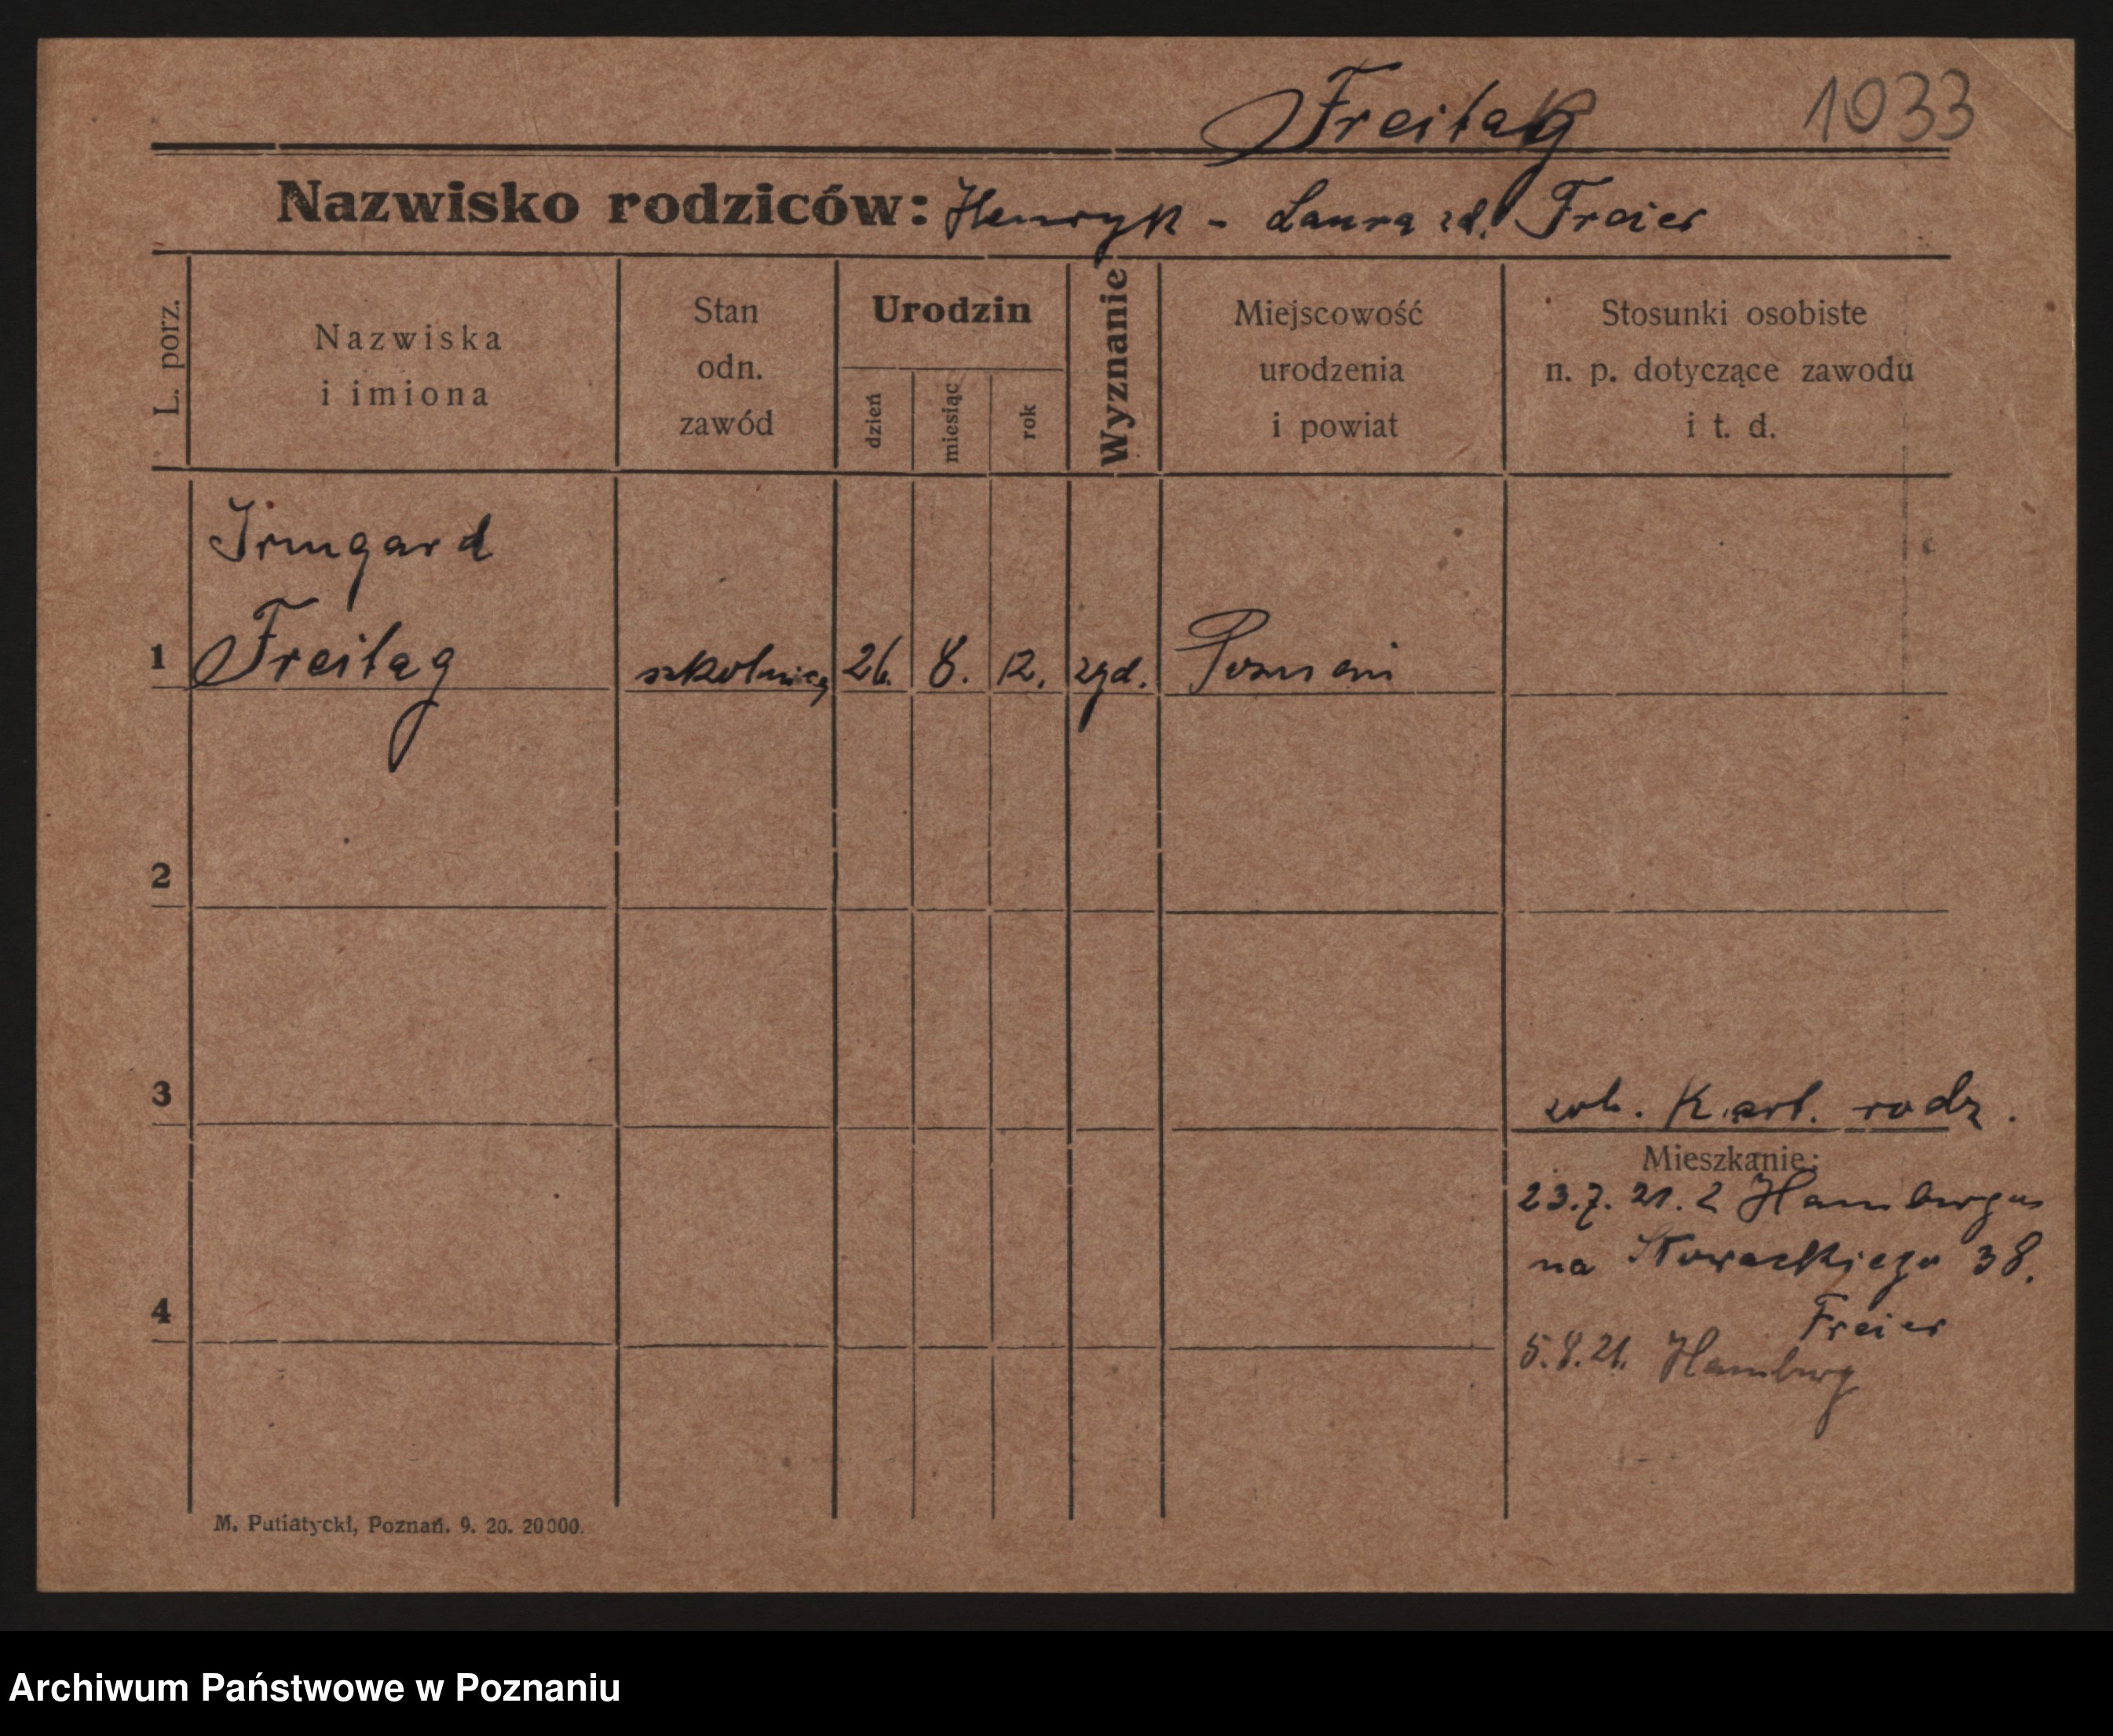 Freitag 1033
Nazwisko rodziców: Henryk - Laura zd. Freier
L. porz.
Nazwiska
i imiona
Stan
odn.
zawód
Urodzin
dzień
miesiąc
rok
Wyznanie
Miejscowość
urodzenia
i powiat
Stosunki osobiste
n. p. dotyczące zawodu
i t. d.
Irmgard
1 Freitag 26. 8. 12. żyd. Poznań
2
3
zob. Kart. rodz.
Mieszkanie:
23.7.21. z Hamburga
na Słowackiego 38.
Freier
4
5.8.21. Hamburg
M. Putiatycki, Poznań. 9. 20. 20000.
Archiwum Państwowe w Poznaniu